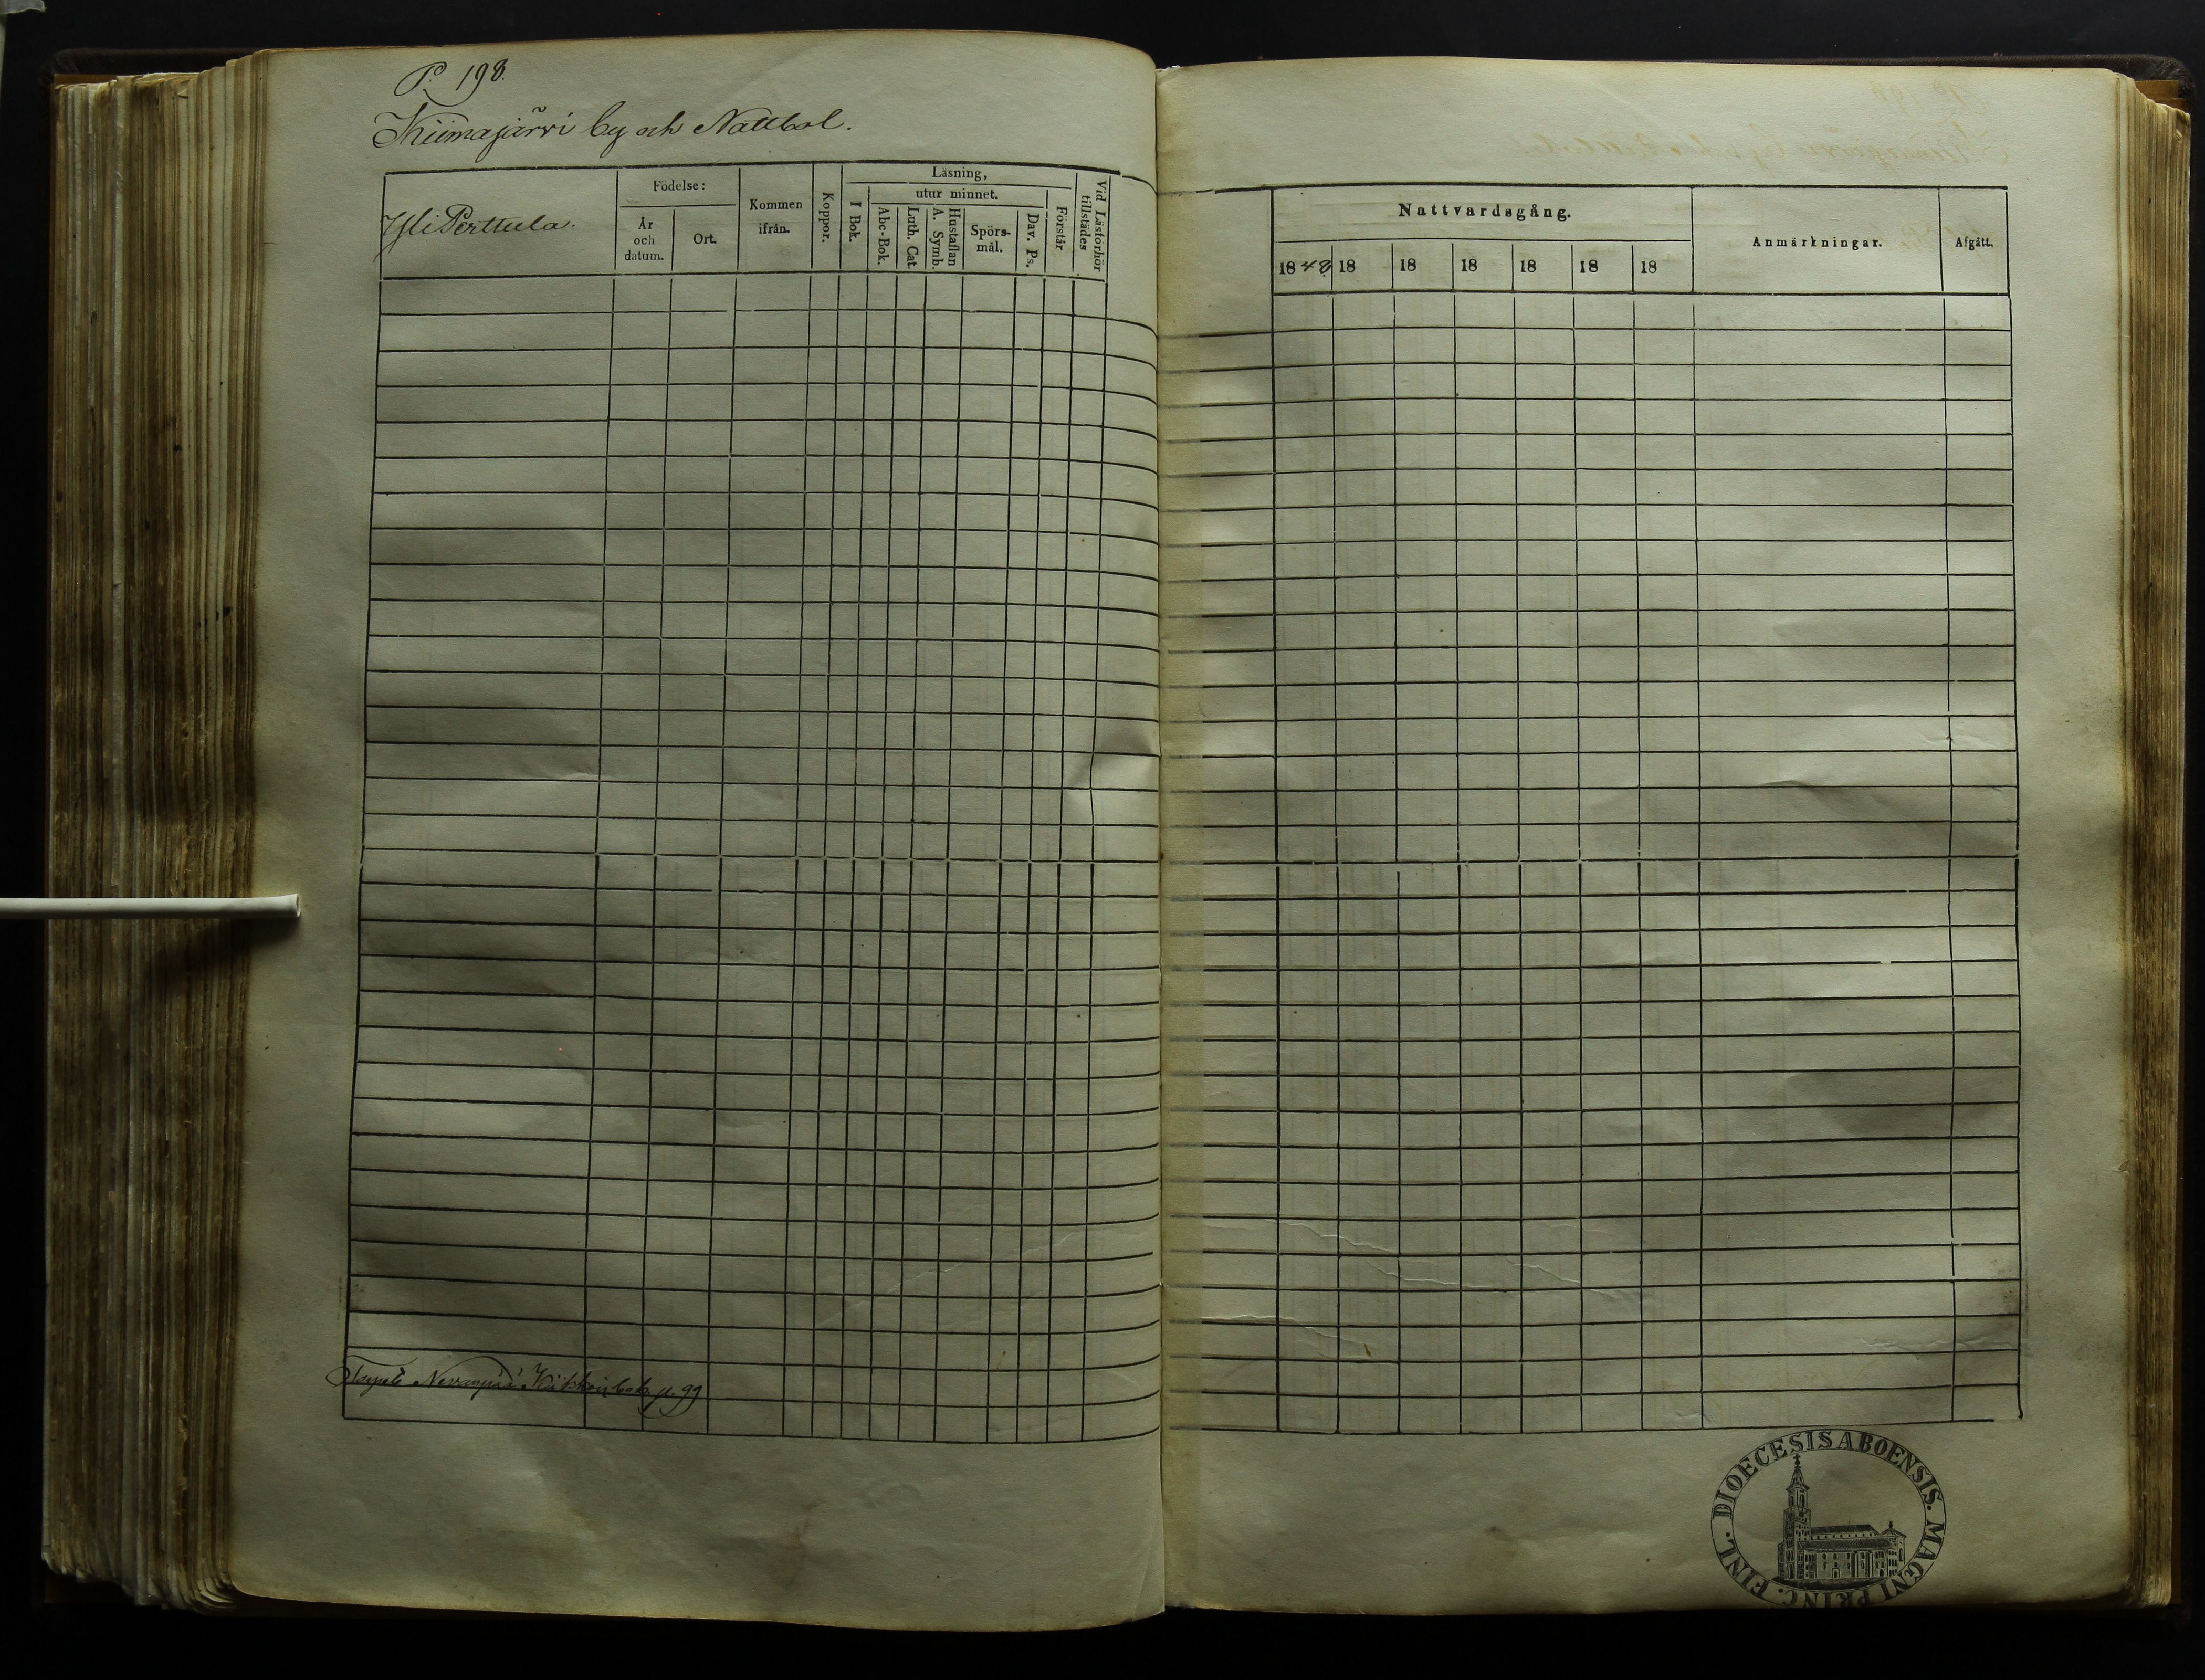 P. 198.
Kiimajärvi by och Nattbol.
Yli Perttula.
Födelse:
År och datum.
Ort.
Kommen ifrån.
Koppor.
Läsning,
I Bok.
utur minnet.
Abc-Bok.
Luth. Cat.
Hustaflan A. Symb.
Spörs-mål.
Dav. Ps.
Förstår
Vid Läsförhör tillstädes
Nattvardsgång.
1848 18 18 18 18 18 18
Anmärkningar.
Afgått.
Torpet Nevanpää p. 99
DIOECESIS ABOENSIS. MAGNI PRINC. FINL.